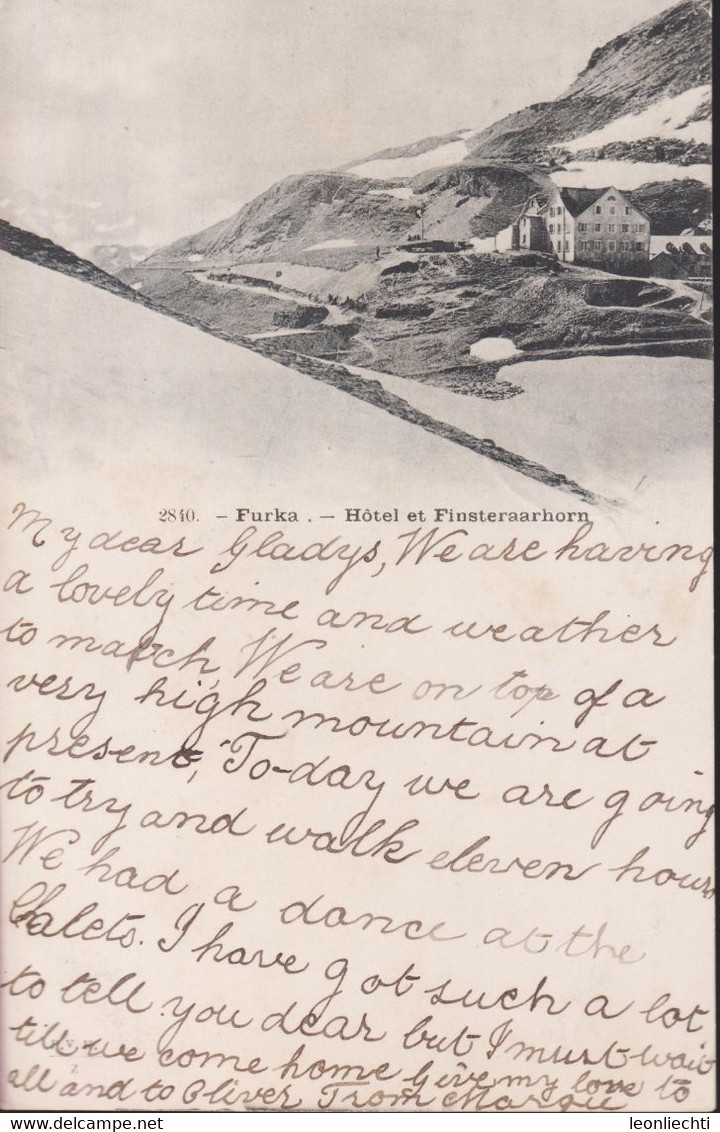 2840. – Furka. – Hôtel et Finsteraarhorn
My dear Gladys, We are having
a lovely time and weather
to match, We are on top of a
very high mountain at
present, To-day we are going
to try and walk eleven hours
We had a dance at the
Chalets. I have got such a lot
to tell you dear but I must wait
till we come home Give my love to
all and to Oliver From
leonliechti